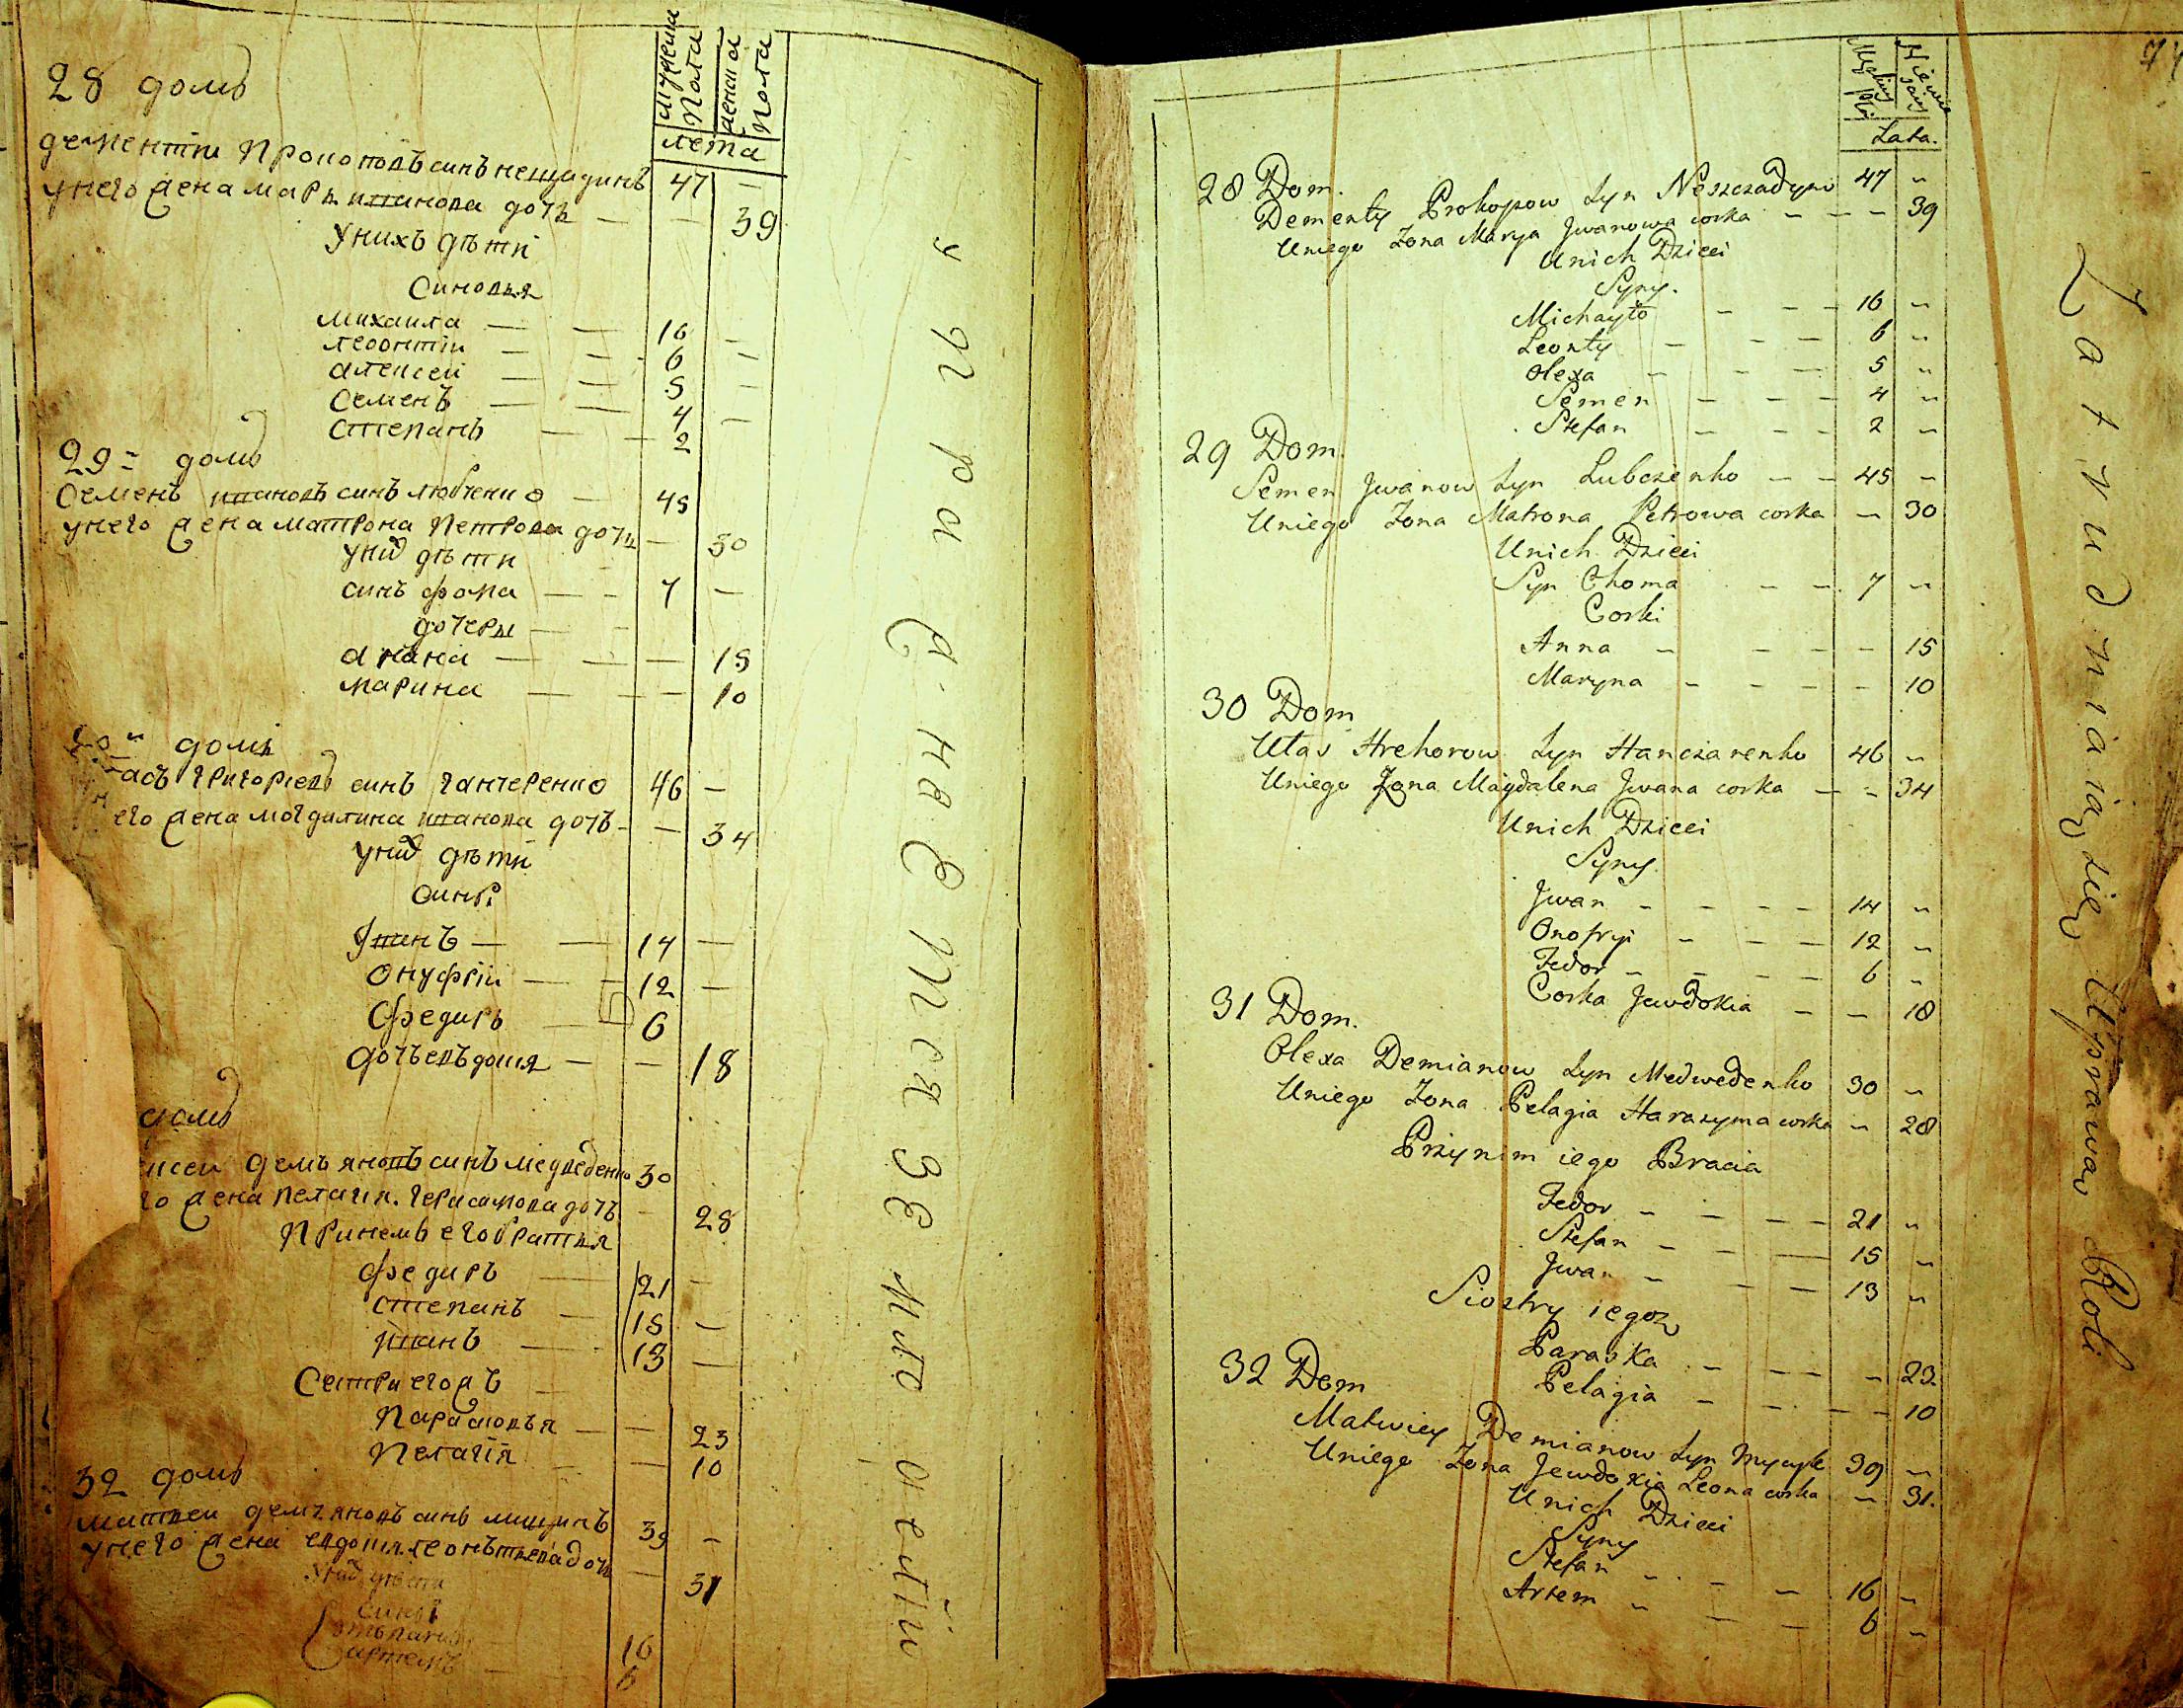 мужеска пола
женска пола
лета
28 домъ
дементіи Прокоповъ синъ нещадинъ 47 —
унего жена Маря ивановa дочь — — 39
Унихъ дѣти
Синовья
михаила — — 16 —
леонтіи — — 6 —
алексеи — — 5 —
Семенъ — — 4 —
Степанъ — — 2
29 = домъ
Семенъ ивановъ синъ любченко — 45
унего жена матрона Петрова дочь — 30
уних дѣти
синъ фома — — 7 —
дочеры
анна — — — 15
марина — — — 10
домъ
григориевъ синъ ганчеренко 46 —
его жена могдалина иванова дочъ — — 34
уних дѣти
сины
Иванъ — — 14 —
Онуфрій — — 12 —
Федиръ — 6
дочъ евъдокия — — 18
домъ
демъяновъ синъ медведенко 30
жена пелагия герасимова дочъ — 28
Принемъ его братья
федиръ — 21 —
степанъ — 15 —
иванъ — 13 —
Сестри егожъ
Парасковъя — — 23
Пелагія — — 10
32 домъ
матвеи демъяновъ синъ мицикъ 39 —
унего жена евдокия леонътьева дочь — 31
уних дѣти
сины
Степанъ 16
артемъ — 6
упражнаетсязе млю оемїй
74
Męskiey płci
Lata.
28 Dom.
Dementy Prokopow Syn Neszczadym 47 "
Uniego Zona Marya Jwanowa corka — — — 39
Unich Dzieci
Syny.
Michayło — — — 16 "
Leonty — — — 6 "
Olexa — — 5 "
Semen — — — 4 "
Stefan — — — 2 "
29 Dom.
Semen Jwanow Syn Lubczenko — — 45 "
Uniego Zona Matrona Petrowa corka — 30
Unich Dzieci
Syn Choma — — 7 "
Corki
Anna — — — — 15
Maryna — — — — 10
30 Dom
Ułas Hrehorow Syn Hanczarenko 46 "
Uniego Zona Magdalena Jwana corka — — 34
Unich Dzieci
Syny.
Jwan — — — — 14 "
Onofryi — — — 12 "
Fedor — — — — 6 "
Corka Jewdokia — — 18
31 Dom.
Olexa Demianow Syn Medwedenko 30 "
Uniego Zona Pelagia Harazyma corka — 28
Przynim iego Bracia
Fedor — — — — 21 "
Stefan — — — 15 "
Jwan — — — 13 "
Siostry iegoz
Paraska — — — — 23
Pelagia — — — — 10
32 Dom
Matwiey Demianow Syn Mycyk 39 "
Uniego Zona Jewdoxia Leona corka — 31.
Unich Dzieci
Syny
Stefan — — — 16 "
Artem — — — 6 "
Zatrudniaią się Uprawą Roli